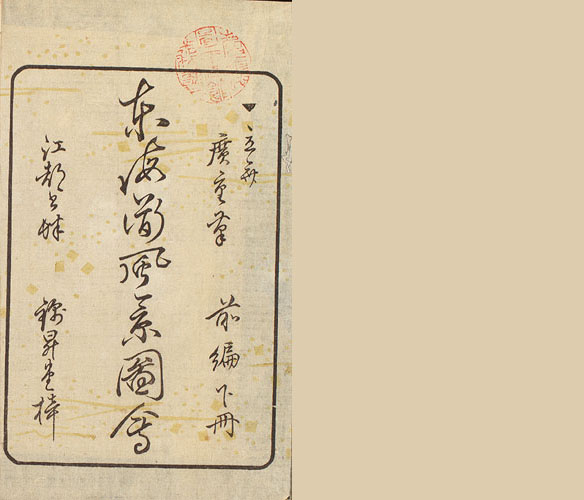 立斎
廣重筆 前編下冊
東海道風景圖會
江都書肆 錦昇堂梓